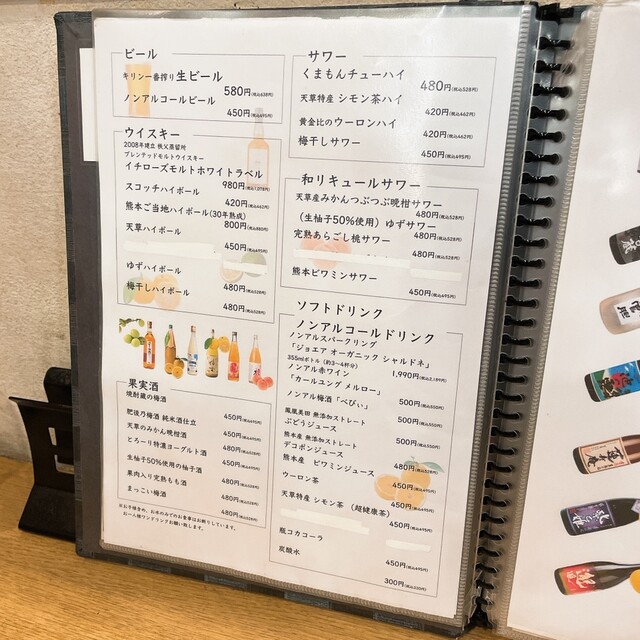 ビール
キリン一番搾り生ビール
580円(税込638円)
ノンアルコールビール
450円(税込495円)
ウイスキー
2008年建立 秩父蒸留所
ブレンテッドモルトウイスキー
イチローズモルトホワイトラベル
980円(税込1,078円)
スコッチハイボール
420円(税込462円)
熊本ご当地ハイボール(30年熟成)
800円(税込880円)
天草ハイボール
450円(税込495円)
ゆずハイボール
480円(税込528円)
梅干しハイボール
480円(税込528円)
果実酒
焼酎蔵の梅酒
450円(税込495円)
肥後乃梅酒 純米酒仕立
450円(税込495円)
天草のみかん晩柑酒
450円(税込495円)
とろーり特濃ヨーグルト酒
480円(税込528円)
生柚子50%使用の柚子酒
480円(税込528円)
果肉入り完熟もも酒
480円(税込528円)
まっこい梅酒
480円(税込528円)
※お子様含め、お水のみでのお食事はお断りしています。
お一人様ワンドリンクお願い致します。
サワー
くまもんチューハイ
480円(税込528円)
天草特産 シモン茶ハイ
420円(税込462円)
黄金比のウーロンハイ
420円(税込462円)
梅干しサワー
450円(税込495円)
和リキュールサワー
天草産みかんつぶつぶ晩柑サワー
480円(税込528円)
(生柚子50%使用)ゆずサワー
480円(税込528円)
完熟あらごし桃サワー
480円(税込528円)
熊本ピワミンサワー
450円(税込495円)
ソフトドリンク
ノンアルコールドリンク
ノンアルスパークリング
「ジョエア オーガニック シャルドネ」
355mlボトル (約3〜4杯分)
1,990円(税込2,189円)
ノンアル赤ワイン
「カールユング メルロー」
500円(税込550円)
ノンアル梅酒「べびぃ」
500円(税込550円)
鳳凰美田 無添加ストレート
ぶどうジュース
500円(税込550円)
熊本産 無添加ストレート
デコポンジュース
480円(税込528円)
熊本産 ピワミンジュース
450円(税込495円)
ウーロン茶
450円(税込495円)
天草特産 シモン茶 (超健康茶)
450円(税込495円)
瓶コカコーラ
450円(税込495円)
炭酸水
300円(税込330円)